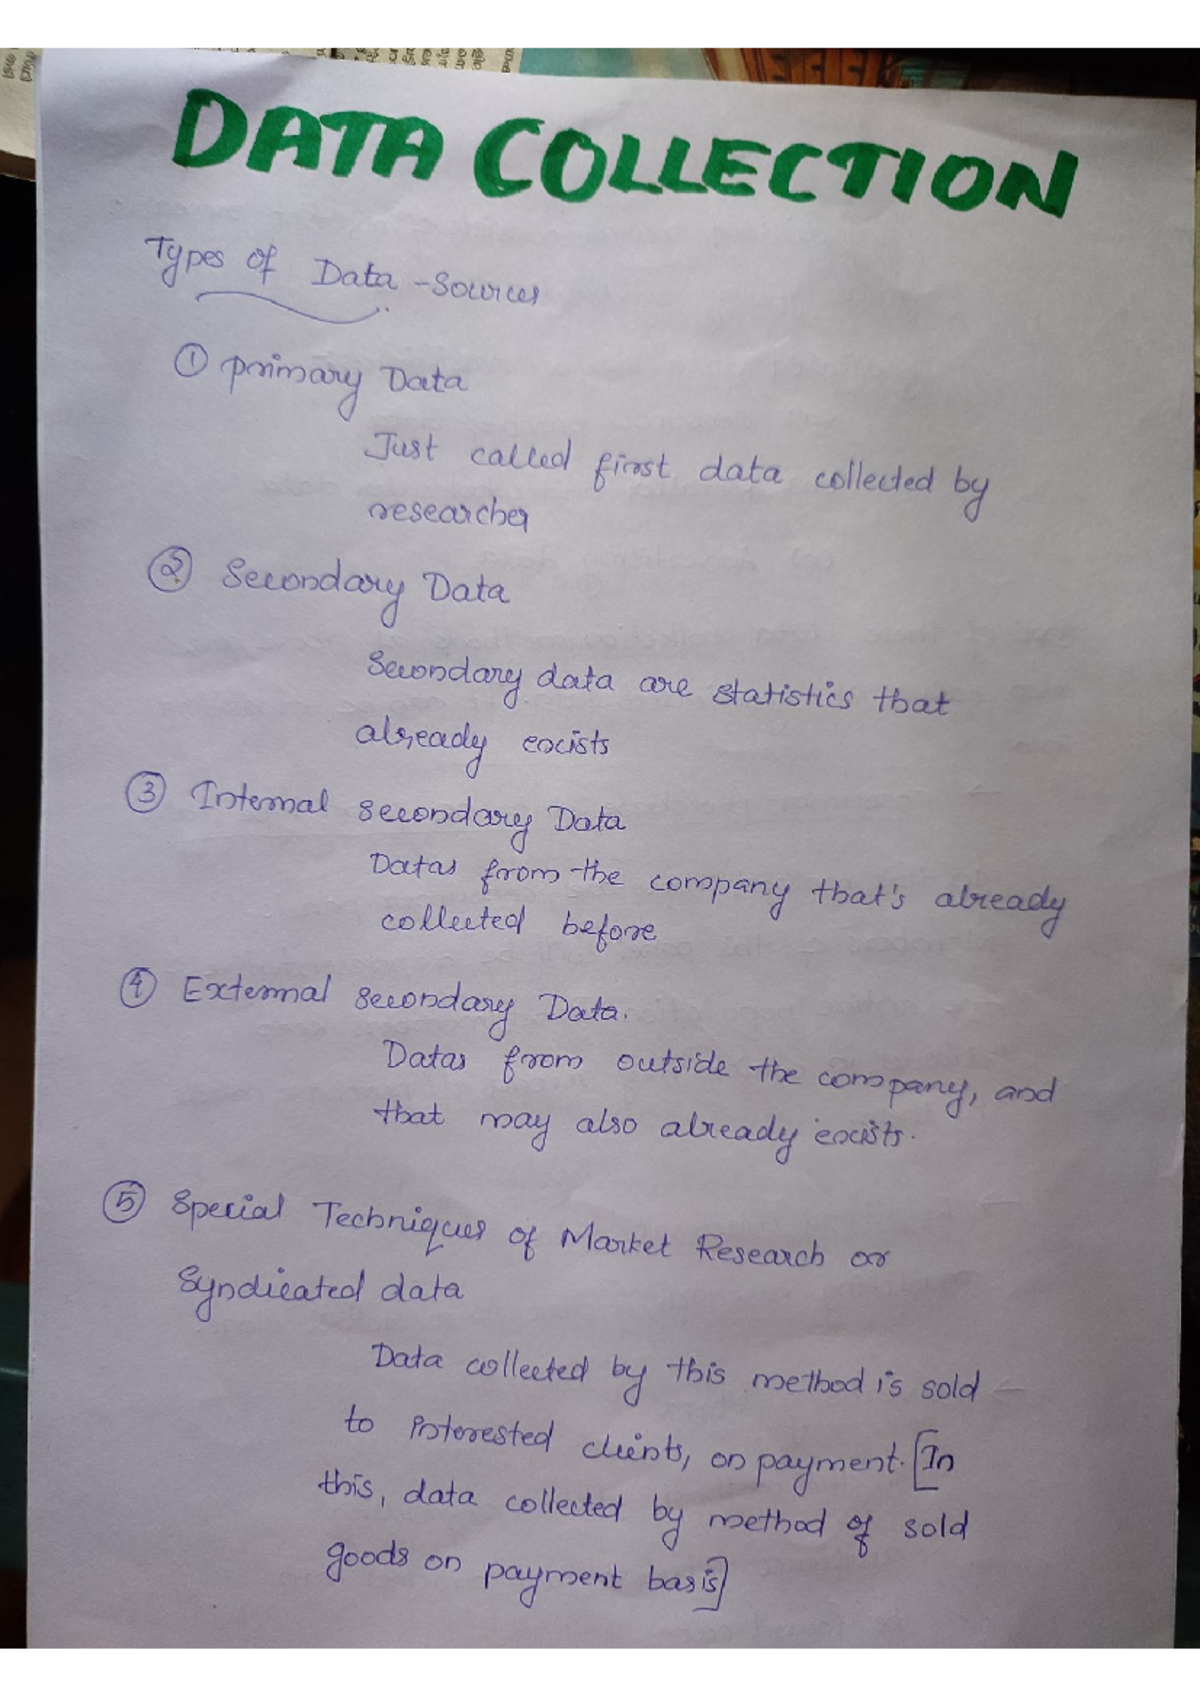 DATA COLLECTION
Types of Data - Sources
① Primary Data
Just called first data collected by
researcher
② Secondary Data
Secondary data are statistics that
already exists
③ Internal secondary Data
Datas from the company that's already
collected before
④ External secondary Data.
Datas from outside the company, and
that may also already exists.
⑤ Special Techniques of Market Research or
Syndicated data
Data collected by this method is sold
to interested clients, on payment. [In
this, data collected by method of sold
goods on payment basis]